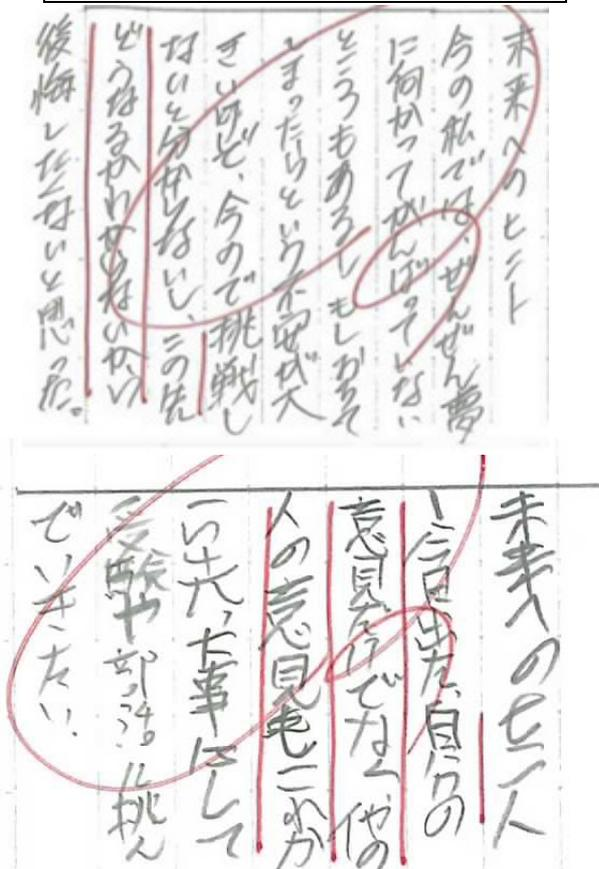 未来へのヒント
今の私では、ぜんぜん夢
に向かってがんばっていない
ところもあるし、もしおちて
しまったらという不安が大
きいけど、今ので挑戦し
ないと分からないし、この先
どうなるかわからないから
後悔したくないと思った。
未来へのヒント
今日出た、自分の
意見だけでなく、他の
人の意見もこれか
大事にして
受験や部活に挑ん
でいきたい。